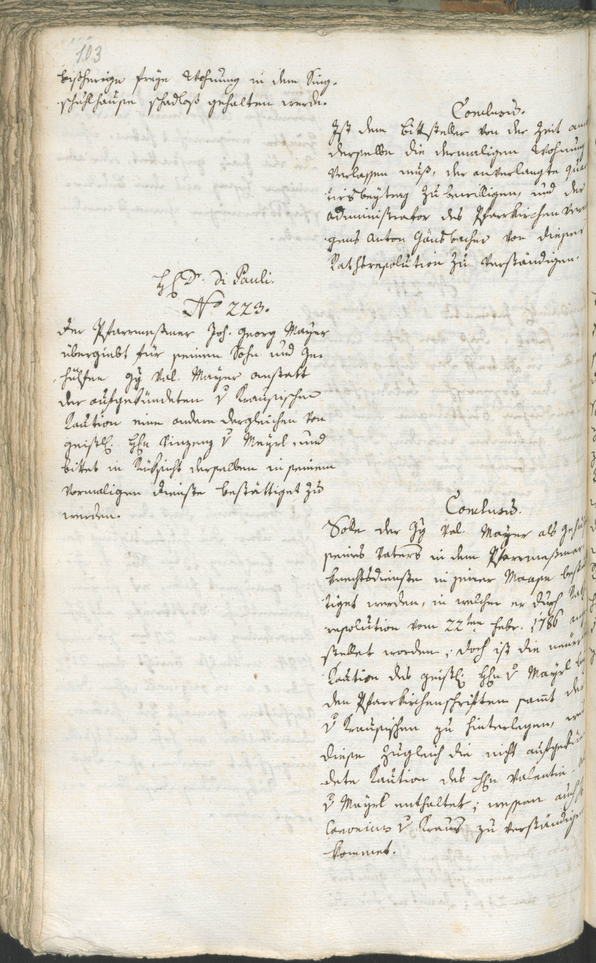 103
bisherige freye Wohnung in dem Sing-
schuhlhause schadlos gehalten werde.
Conclusum.
Ist dem Bittsteller von der Zeit an
derselbe die dermaligen Wohnung
verlassen muß, der anverlangte
zu bewilligen, und der
Administrator des Pfarrkirchen Ver-
gens Anton Gänsbacher von dieser
Rathsresolution zu verständigen.
H D. Di Pauli.
No 223.
Der Pfarrmeßner Joh. Georg Mayer
übergiebt für seinen Sohn und Ge-
hülfen Val. Mayer anstatt
der aufgekündeten v Krausischen
Kaution eine andere dergleichen von
geistl. Hhn Vinzenz v Mayrl und
bittet in Rücksicht derselben in seinem
vormaligen Dienste bestättiget zu
werden.
Conclusum.
Solle der Val. Mayer als
seines Vaters in dem Pfarrmeßner
knechtsdienste in jener Maaße
tiget werden, in welcher er durch
resolution vom 22ten Febr. 1786
stellet worden; doch ist die neue
Kaution des geistl. Hhn v Mayrl
den Pfarrkirchenschriften sammt der
v Krausischen zu hinterlegen,
diese zugleich die nicht aufgekün
dete Kaution des Hhn Valentin
v Mayrl enthaltet; wessen auch
Canonicus v Kraus zu verständigen
kommet.